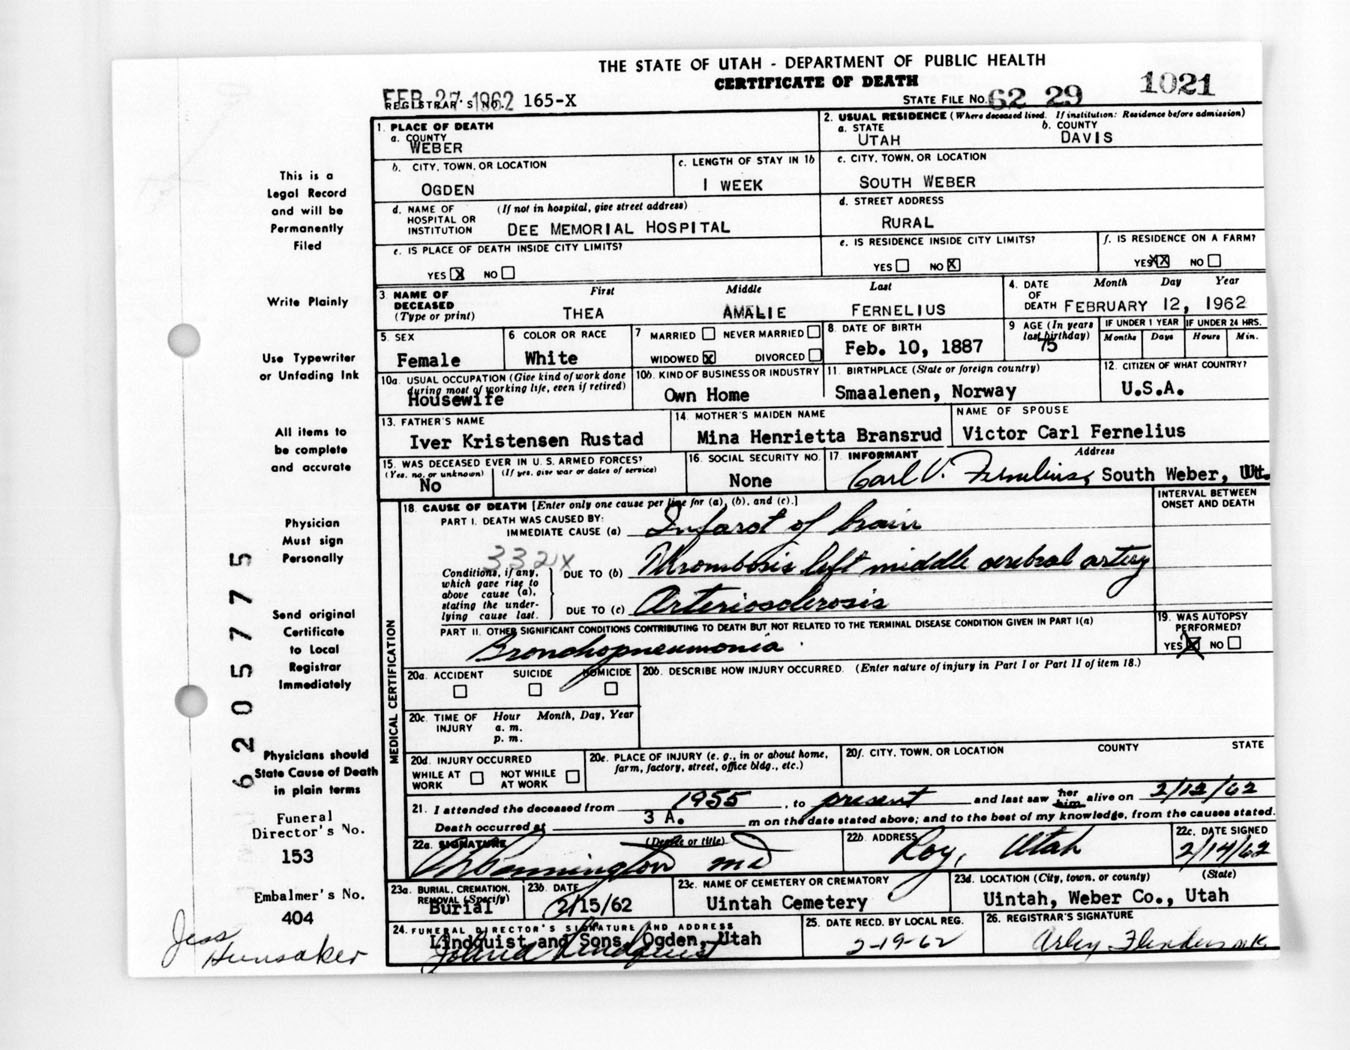 THE STATE OF UTAH - DEPARTMENT OF PUBLIC HEALTH
CERTIFICATE OF DEATH
1021
FEB 27 1962
REGISTRAR'S NO. 165-X
STATE FILE NO. 62 29
1. PLACE OF DEATH
a. COUNTY
WEBER
2. USUAL RESIDENCE (Where deceased lived. If institution: Residence before admission)
a. STATE
UTAH
b. COUNTY
DAVIS
b. CITY, TOWN, OR LOCATION
OGDEN
c. LENGTH OF STAY IN 1b
1 WEEK
c. CITY, TOWN, OR LOCATION
SOUTH WEBER
d. NAME OF HOSPITAL OR INSTITUTION (If not in hospital, give street address)
DEE MEMORIAL HOSPITAL
d. STREET ADDRESS
RURAL
e. IS PLACE OF DEATH INSIDE CITY LIMITS?
YES X NO
e. IS RESIDENCE INSIDE CITY LIMITS?
YES NO X
f. IS RESIDENCE ON A FARM?
YES XX NO
3. NAME OF DECEASED (Type or print)
First Middle Last
THEA AMALIE FERNELIUS
4. DATE OF DEATH Month Day Year
FEBRUARY 12, 1962
5. SEX
Female
6 COLOR OR RACE
White
7 MARRIED NEVER MARRIED
WIDOWED X DIVORCED
8. DATE OF BIRTH
Feb. 10, 1887
9 AGE (In years last birthday)
75
IF UNDER 1 YEAR
Months Days
IF UNDER 24 HRS.
Hours Min.
10a. USUAL OCCUPATION (Give kind of work done during most of working life, even if retired)
Housewife
10b. KIND OF BUSINESS OR INDUSTRY
Own Home
11. BIRTHPLACE (State or foreign country)
Smaalenen, Norway
12. CITIZEN OF WHAT COUNTRY?
U.S.A.
13. FATHER'S NAME
Iver Kristensen Rustad
14. MOTHER'S MAIDEN NAME
Mina Henrietta Bransrud
NAME OF SPOUSE
Victor Carl Fernelius
15. WAS DECEASED EVER IN U. S. ARMED FORCES?
(Yes, no, or unknown) (If yes, give war or dates of service)
No
16. SOCIAL SECURITY NO.
None
17. INFORMANT Address
Carl V. Fernelius, South Weber, Ut.
18. CAUSE OF DEATH [Enter only one cause per line for (a), (b), and (c).]
INTERVAL BETWEEN ONSET AND DEATH
PART I. DEATH WAS CAUSED BY:
IMMEDIATE CAUSE (a) Infarct of brain
332X
Conditions, if any, which gave rise to above cause (a), stating the underlying cause last.
DUE TO (b) Thrombosis left middle cerebral artery
DUE TO (c) Arteriosclerosis
PART II. OTHER SIGNIFICANT CONDITIONS CONTRIBUTING TO DEATH BUT NOT RELATED TO THE TERMINAL DISEASE CONDITION GIVEN IN PART I(a)
Bronchopneumonia
19. WAS AUTOPSY PERFORMED?
YES X NO
MEDICAL CERTIFICATION
20a. ACCIDENT SUICIDE HOMICIDE
20b. DESCRIBE HOW INJURY OCCURRED. (Enter nature of injury in Part I or Part II of item 18.)
20c. TIME OF INJURY Hour Month, Day, Year
a. m.
p. m.
20d. INJURY OCCURRED
WHILE AT WORK NOT WHILE AT WORK
20e. PLACE OF INJURY (e. g., in or about home, farm, factory, street, office bldg., etc.)
20f. CITY, TOWN, OR LOCATION COUNTY STATE
21. I attended the deceased from 1955, to present and last saw her him alive on 2/12/62
Death occurred at 3 A. m on the date stated above; and to the best of my knowledge, from the causes stated.
22a. SIGNATURE (Degree or title)
MD
22b. ADDRESS
Roy, Utah
22c. DATE SIGNED
2/14/62
23a. BURIAL, CREMATION, REMOVAL (Specify)
Burial
23b. DATE
2/15/62
23c. NAME OF CEMETERY OR CREMATORY
Uintah Cemetery
23d. LOCATION (City, town, or county) (State)
Uintah, Weber Co., Utah
24. FUNERAL DIRECTOR'S SIGNATURE AND ADDRESS
Lindquist and Sons, Ogden, Utah
25. DATE RECD. BY LOCAL REG.
2-19-62
26. REGISTRAR'S SIGNATURE
This is a
Legal Record
and will be
Permanently
Filed
Write Plainly
Use Typewriter
or Unfading Ink
All items to
be complete
and accurate
Physician
Must sign
Personally
Send original
Certificate
to Local
Registrar
Immediately
Physicians should
State Cause of Death
in plain terms
Funeral
Director's No.
153
Embalmer's No.
404
Jess
Hunsaker
6205775